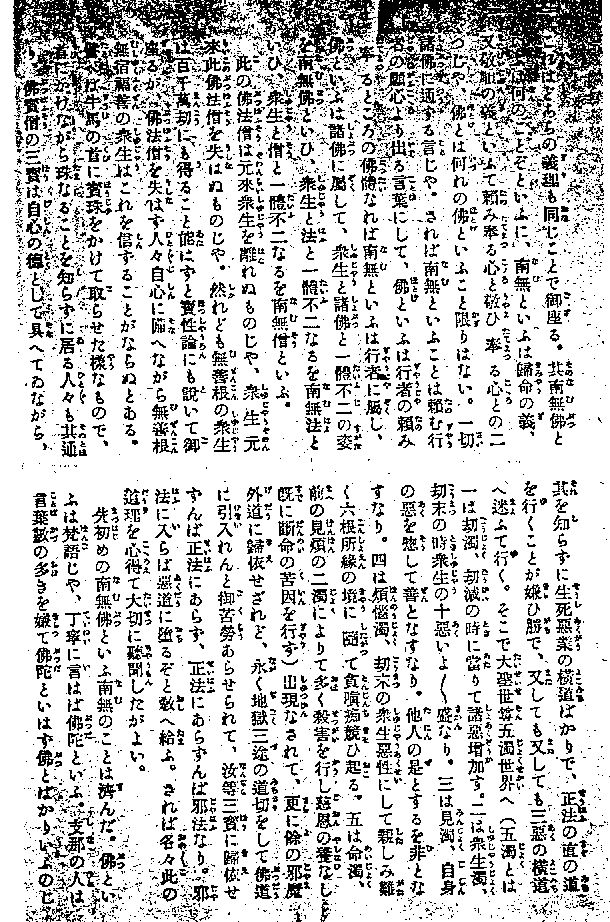 これはどちらの義理も同じことで御座る。其南無佛と
は何のことぞといふに、南無といふは歸命の義、
又敬順の義といふて頼み奉る心と敬ひ奉る心との二
つじや。佛とは何れの佛といふこと限りはない。一切
諸佛に通する言じや。されば南無といふことは頼む行
者の願心より出る言葉にして、佛といふは行者の頼み
奉るところの佛體なれば南無といふは行者に屬し、
佛といふは諸佛に屬して、衆生と諸佛と一體不二の姿
を南無佛といひ、衆生と法と一體不二なるを南無法と
いひ、衆生と僧と一體不二なるを南無僧といふ。
此の佛法僧は元來衆生を離れぬものじや、衆生元
來此佛法僧を失はぬものじや。然れども無善根の衆生
は百千萬劫にも得ること能はずと寶性論にも説いて御
座るが、佛法僧を失はず人々自心に備へながら無善根
無宿福善の衆生はこれを信することがならぬとある。
譬へば牛馬の首に寶珠をかけて取らせた樣なもので、
首にかけながら珠なることを知らずに居る人々も其通
り、佛寶僧の三寶は自心の德として具へてゐながら、
其を知らずに生死惡業の橫道ばかりで、正法の直の道
を行くことが嫌ひ勝で、又しても又しても三惡の橫道
へ迷ふて行く。そこで大聖世尊五濁世界へ(五濁とは
一は劫濁、劫減の時に當りて諸惡增加す。二は衆生濁、
劫末の時衆生の十惡いよ〳〵盛なり。三は見濁、自身
の惡を惣して善となすなり。他人の是とするを非とな
すなり。四は煩惱濁、劫末の衆生惡性にして親しみ難
く六根所緣の境に隨て貪嗔痴競ひ起る。五は命濁、
前の見煩の二濁によりて多く殺害を行し慈恩の養なし
既に斷命の苦因を行す)出現なされて、更に餘の邪魔
外道に歸依せざれど、永く地獄三途の道切をして佛道
に引入れんと御苦勞あらせられて、汝等三寶に歸依せ
ずんば正法にあらず、正法にあらずんば邪法なり。邪
法に入らば惡道に墮るぞと敎へ給ふ。されば各々此の
道理を心得て大切に聽聞したがよい。
先初めの南無佛といふ南無のことは濟んだ。佛とい
ふは梵語じや、丁寧に言はば佛陀といふ。支那の人は
言葉數の多きを嫌て佛陀といはず佛とばかりいふのじ